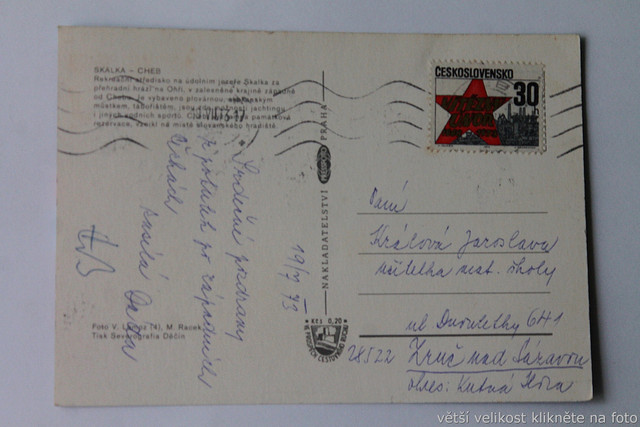 SKALKA – CHEB
Rekreační středisko na údolním jezeře Skalka za
přehradní hrází na Ohři, v zalesněné krajině západně
od Chebu, je vybaveno plovárnou,
můstkem, tábořištěm, jsou zde možnosti jachtingu
i jiných vodních sportů. památková
rezervace, vzniklá na místě slovanského hradiště.
Srdečné pozdravy
z potulek po západních
Čechách
zasílá
19/7 73
Foto V. (4), M. Racek
Tisk Severografia Děčín
NAKLADATELSTVÍ PRAHA
Kčs 0,20
ČESKOSLOVENSKO
30
Paní
Králová Jaroslava
učitelka mat. školy
ul Družstevky 641
28522 Zruč nad Sázavou
okres: Kutná Hora
větší velikost klikněte na foto